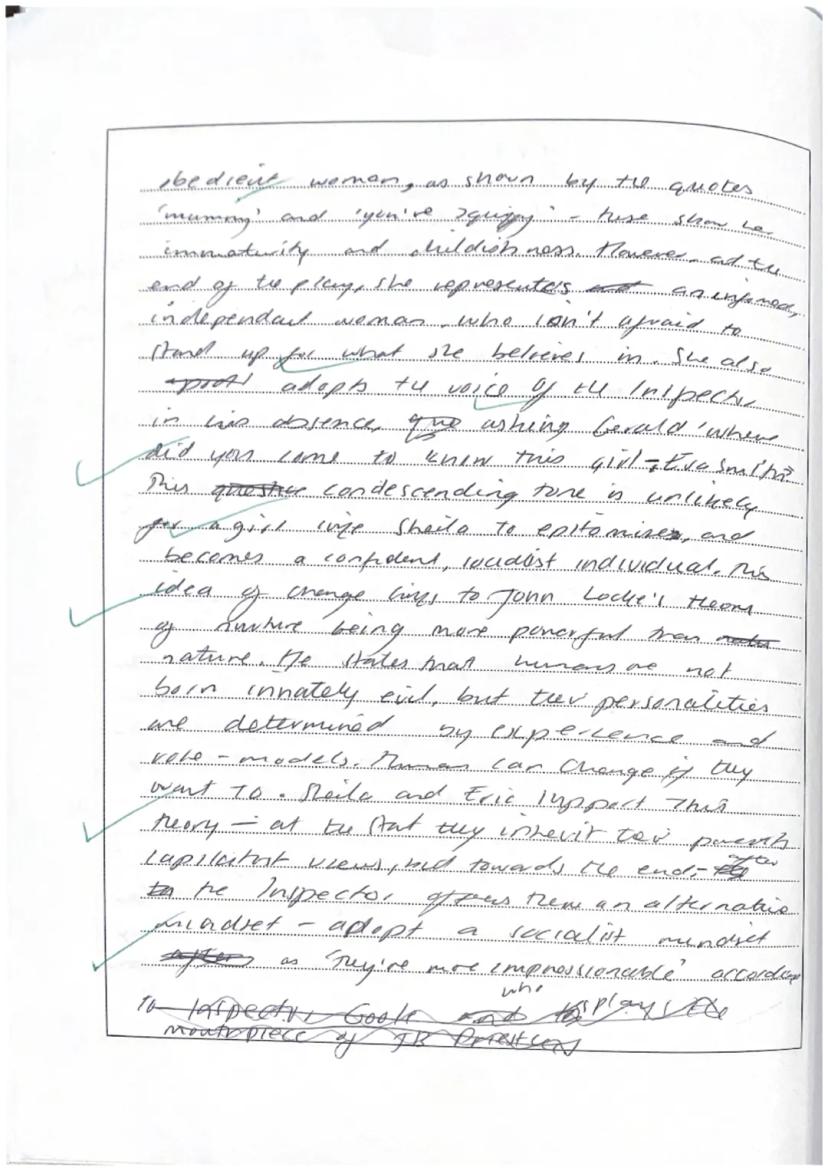 obedient woman, as shown by the quotes
'mummy' and 'you're squiffy' - these show her
immaturity and childishness. However, at the
end of the play, she represents an informed,
independant woman who isn't afraid to
stand up for what she believes in. She also
adopts the voice of the Inspector
in his absence, asking Gerald 'where
did you come to know this girl - Eva Smith?'
This condescending tone is unlikely
for a girl like Sheila to epitomise, and
becomes a confident, socialist individual. This
idea of change links to John Locke's theory
of nurture being more powerful than
nature. He states that humans are not
born innately evil, but their personalities
are determined by experience and
role-models. Human can change if they
want to. Sheila and Eric support this
theory - at the start they inherit their parents
capitalist views, but towards the end, - after
the Inspector offers them an alternative
mindset - adopt a socialist mindset
as 'they're more impressionable' according
to Inspector Goole and who displays the
mouthpiece of JB Priestley